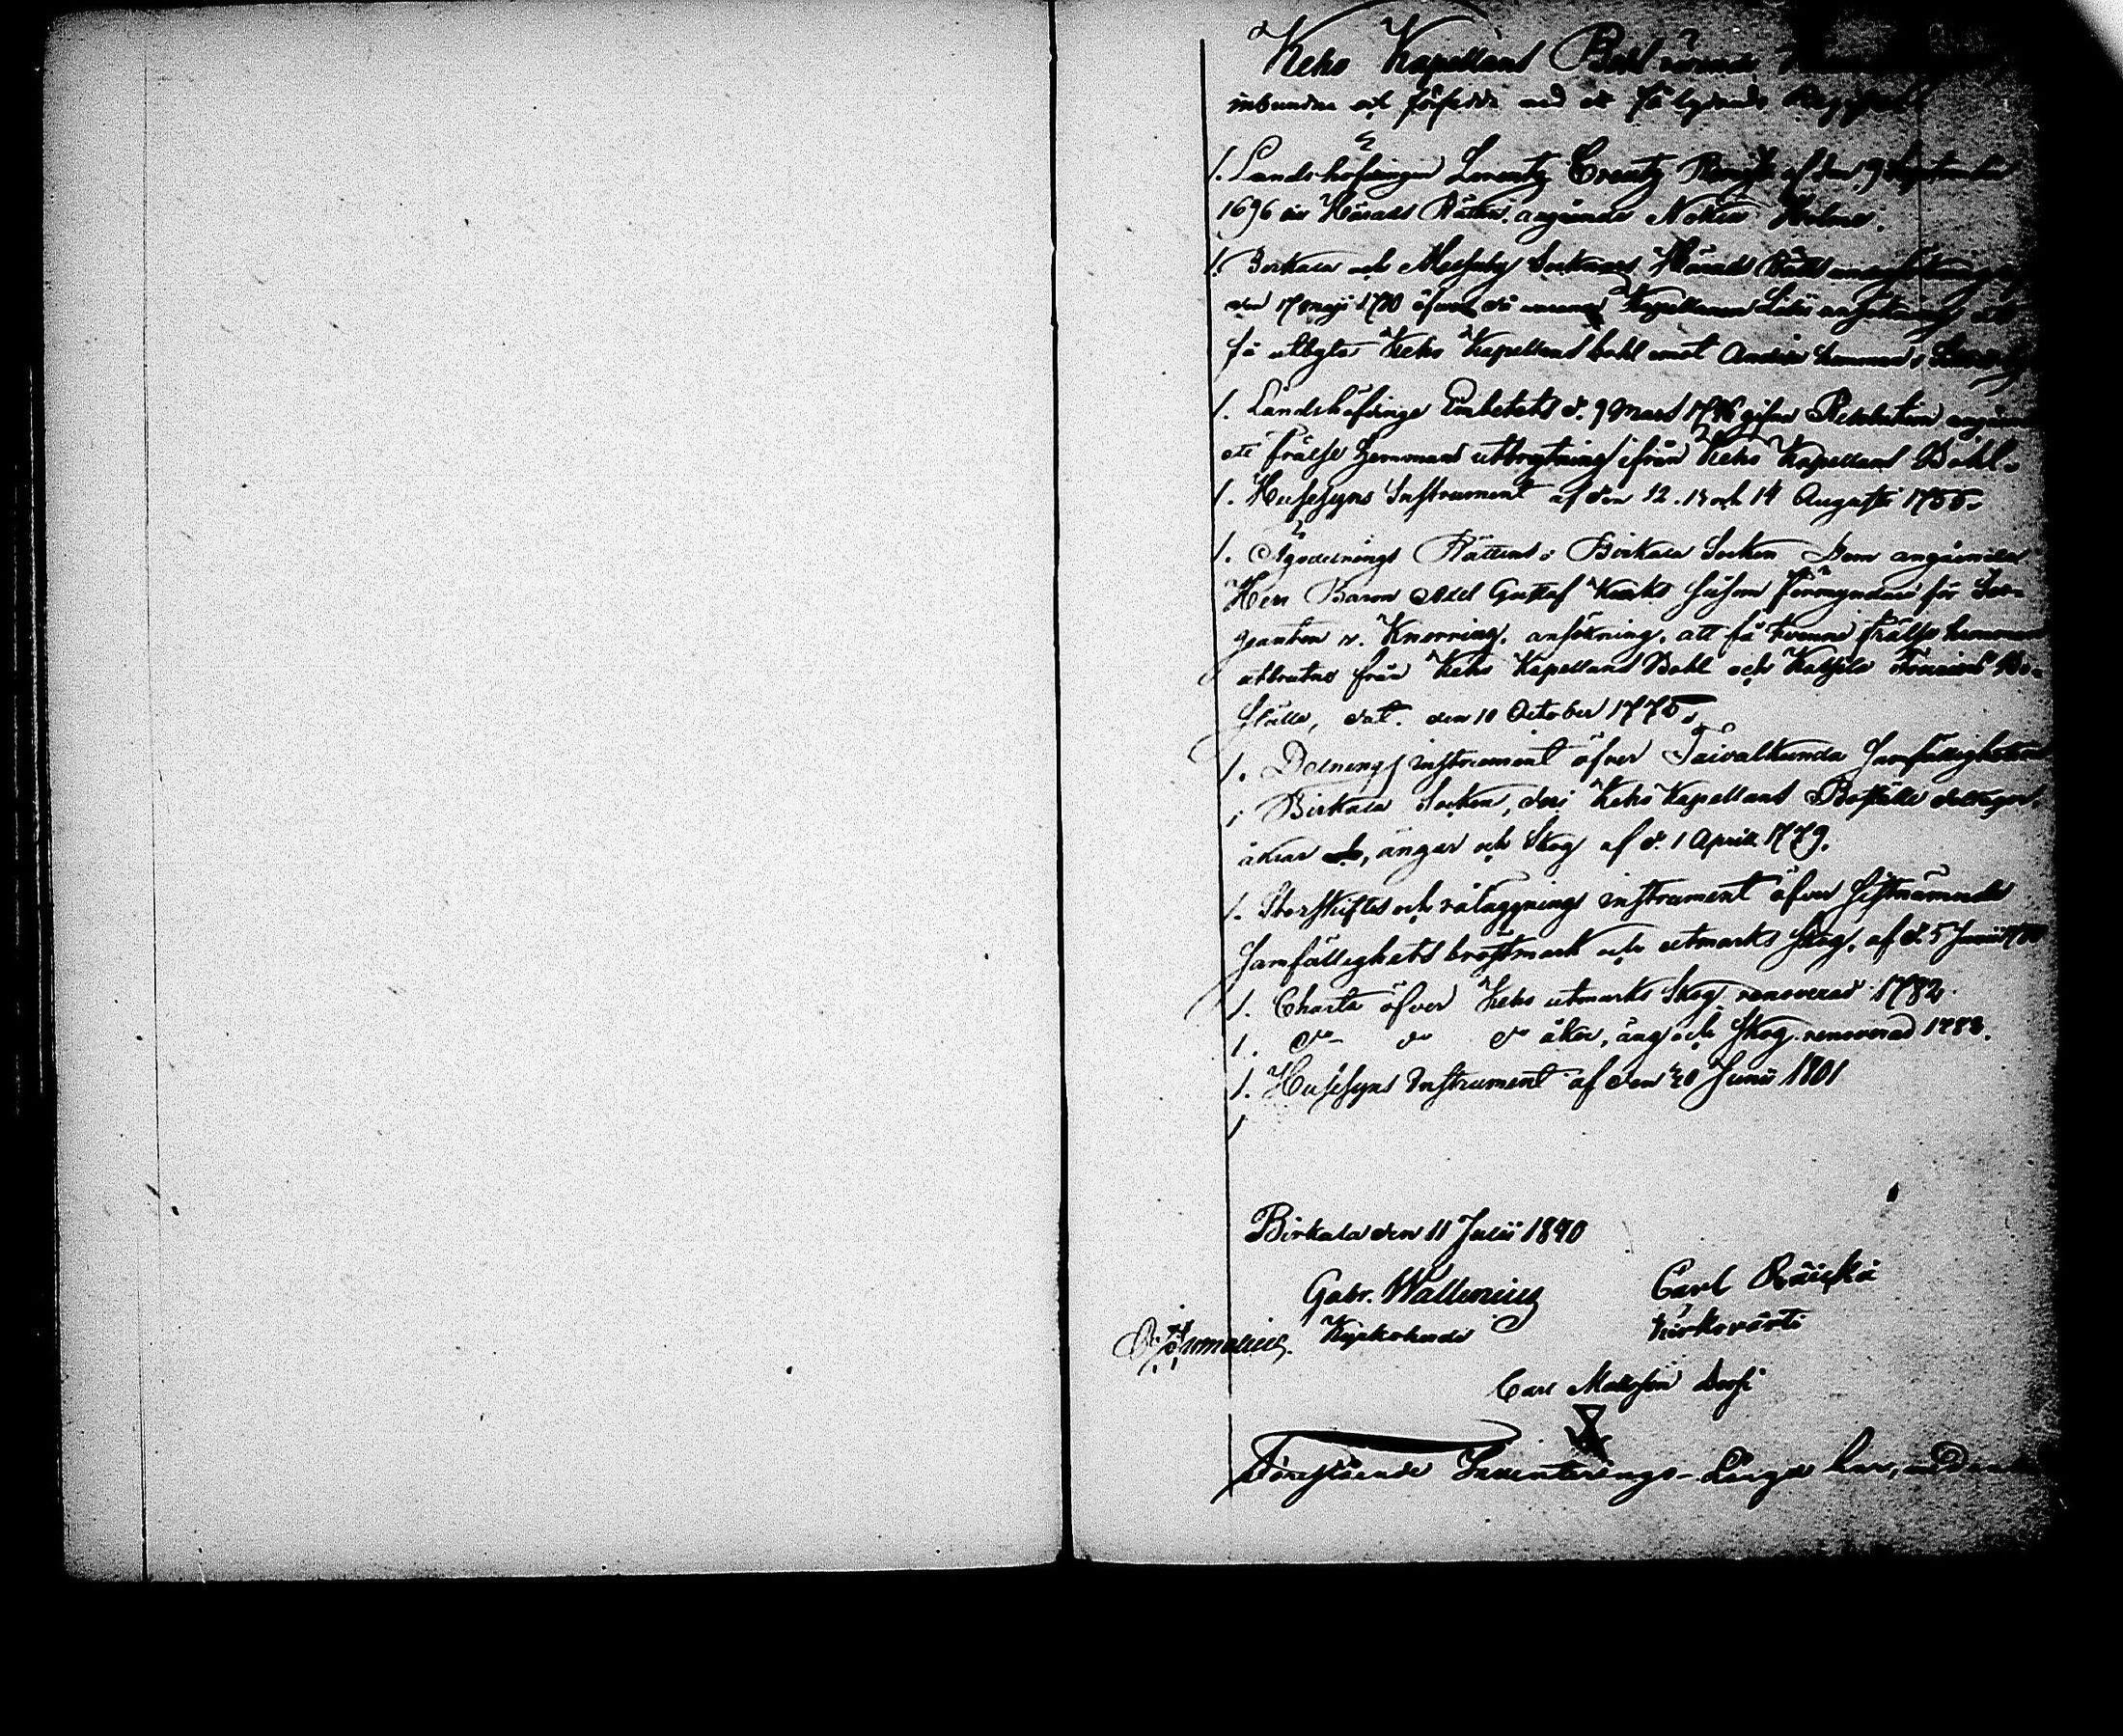 Keho Kapellans Bohl rörande
inbundne och försedde med ett följande
1. Landshöfdingen Lorentz Creutz af den 9 September
1696 Härads Rätten angående Nokia Holme.
1. Birkala och Messuby Socknars Härads Rätts
den 17 maji 1710 öfver då varande Kapellanen ansökning att
få utbyta Keho Kapellans bohl emot Andra hemmans
1. Landshöfdinge Embetets d. 9 Mars 1746 gifne Resolution angående
ett frälse Hemmans utbrytning ifrån Keho Kapellans Bohl.
1. Husesyns Instrument af den 12. 13 och 14 Augusti 1755.
1. Ägodelnings Rättens i Birkala Socken Dom angående
Herr Baron Axel Gustaf Kurks såsom Förmyndare för Ser-
geanten v. Knorring, ansökning, att få tvenne frälse hemman
utbrutne från Keho Kapellans Bohl och Bo-
ställe, dat. den 10 October 1775.
1. Delnings instrument öfver Taivalkunda Samfälligheten
i Birkala Socken, deri Keho Kapellans Boställe deltager,
åkrar, ängar och Skog af d. 1 April 1779.
1. Storskiftes och råläggnings instrument öfver sistnämnde
Samfällighets bröstmark och utmarks skog, af d. 5 Junii
1. Charta öfver Keho utmarks Skog renoverad 1782.
1. d:o d:o d:o åker, äng och Skog renoverad 1788.
1. Husesyns Instrument af den 20 Junii 1801
1
Birkala den 11 Julii 1840
Gabr. Wallenius Carl
Kyrkoherde Kirkovärti
Carl Mattsson
Förestående Inventerings-Längd har,